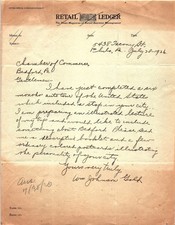 RETAIL LEDGER
5438 Teesing St.
Phila, Pa July 23-1926
Chamber of Commerce
Bedford, Pa
Gentlemen
I have just completed a six
months tour of the United States
which included a stop in your city.
I am preparing an illustrated lecture
of my trip and would like to include
something about Bedford. Please send
me a descriptive booklet and a few
colored postcards illustrating
the of your city.
Yours very truly
Wm Johnson
Ans
7/28/26